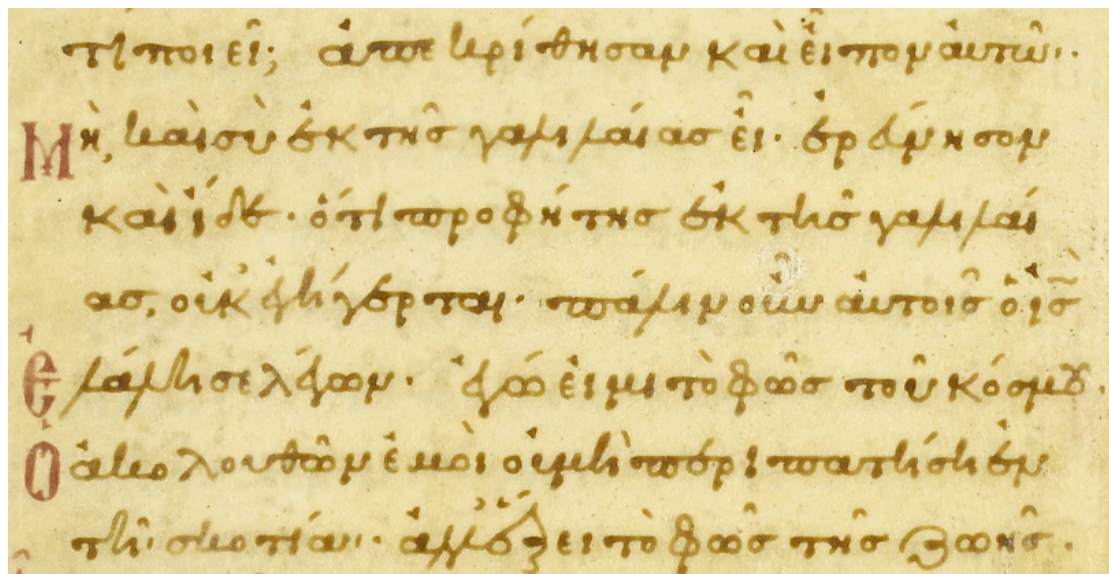 τί ποιεῖ; ἀπεκρίθησαν καὶ εἶπον αὐτῶ·
Μὴ, καὶ σὺ ἐκ τῆς γαλιλαίας εἶ· ἐρεύνησον
καὶ ἴδε· ὅτι προφήτης ἐκ τῆς γαλιλαί
ας, οὐκ ἐγήγερται· πάλιν οὖν αὐτοῖς ὁ ἰς̅
ἐλάλησε λέγων· ἐγώ εἰμι τὸ φῶς τοῦ κόσμου·
Ὁ ἀκολουθῶν ἐμοὶ οὐ μὴ περιπατήση ἐν
τῆ σκοτία· ἀλλ' ἕξει τὸ φῶς τῆς ζωῆς.